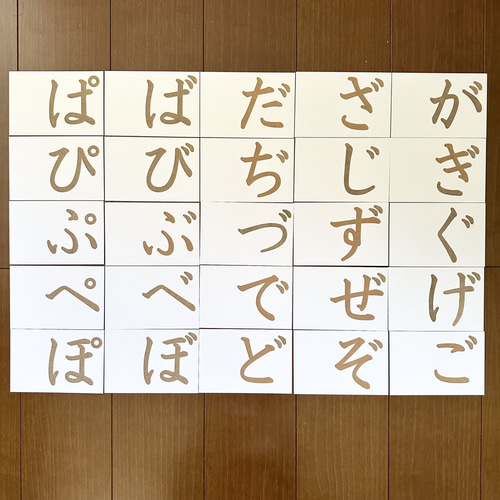 がぎぐげご
ざじずぜぞ
だぢづでど
ばびぶべぼ
ぱぴぷぺぽ